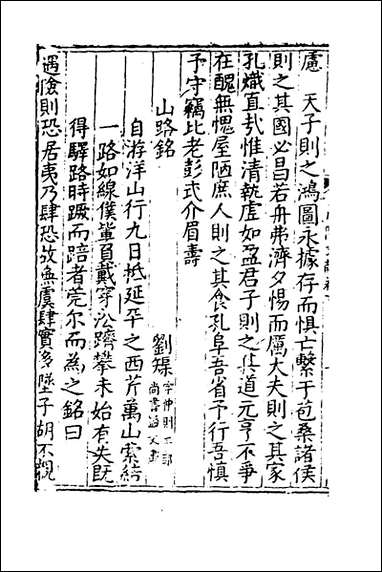 慮　天子則之鴻圖永據存而惧亡繫于苞桑諸侯
則之其國必昌若舟弗濟夕惕而厲大夫則之其家
孔熾直哉惟清執虛如盈君子則之其道元亨不爭
在醜無愧屋陋庶人則之其食孔阜吾省予行吾慎
予守竊比老彭式介眉壽
山路銘
劉堞字仲則工部
尚書
自游洋山行九日抵延平之西芹萬山索結
一路如線僕輩負戴穿沿躋攀未始有失既
得驛路時蹶而踣者莞尔而為之銘曰
遇險則恐居夷乃肆恐故無虞肆實多墜子胡不観